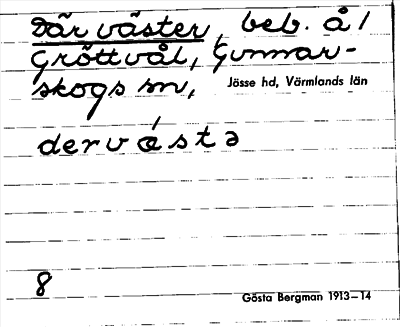 Där väster, beb. å /
Gröttvål, Gunnar-
skogs sn,
Jösse hd, Värmlands län
dervǽstə
8
Gösta Bergman 1913–14